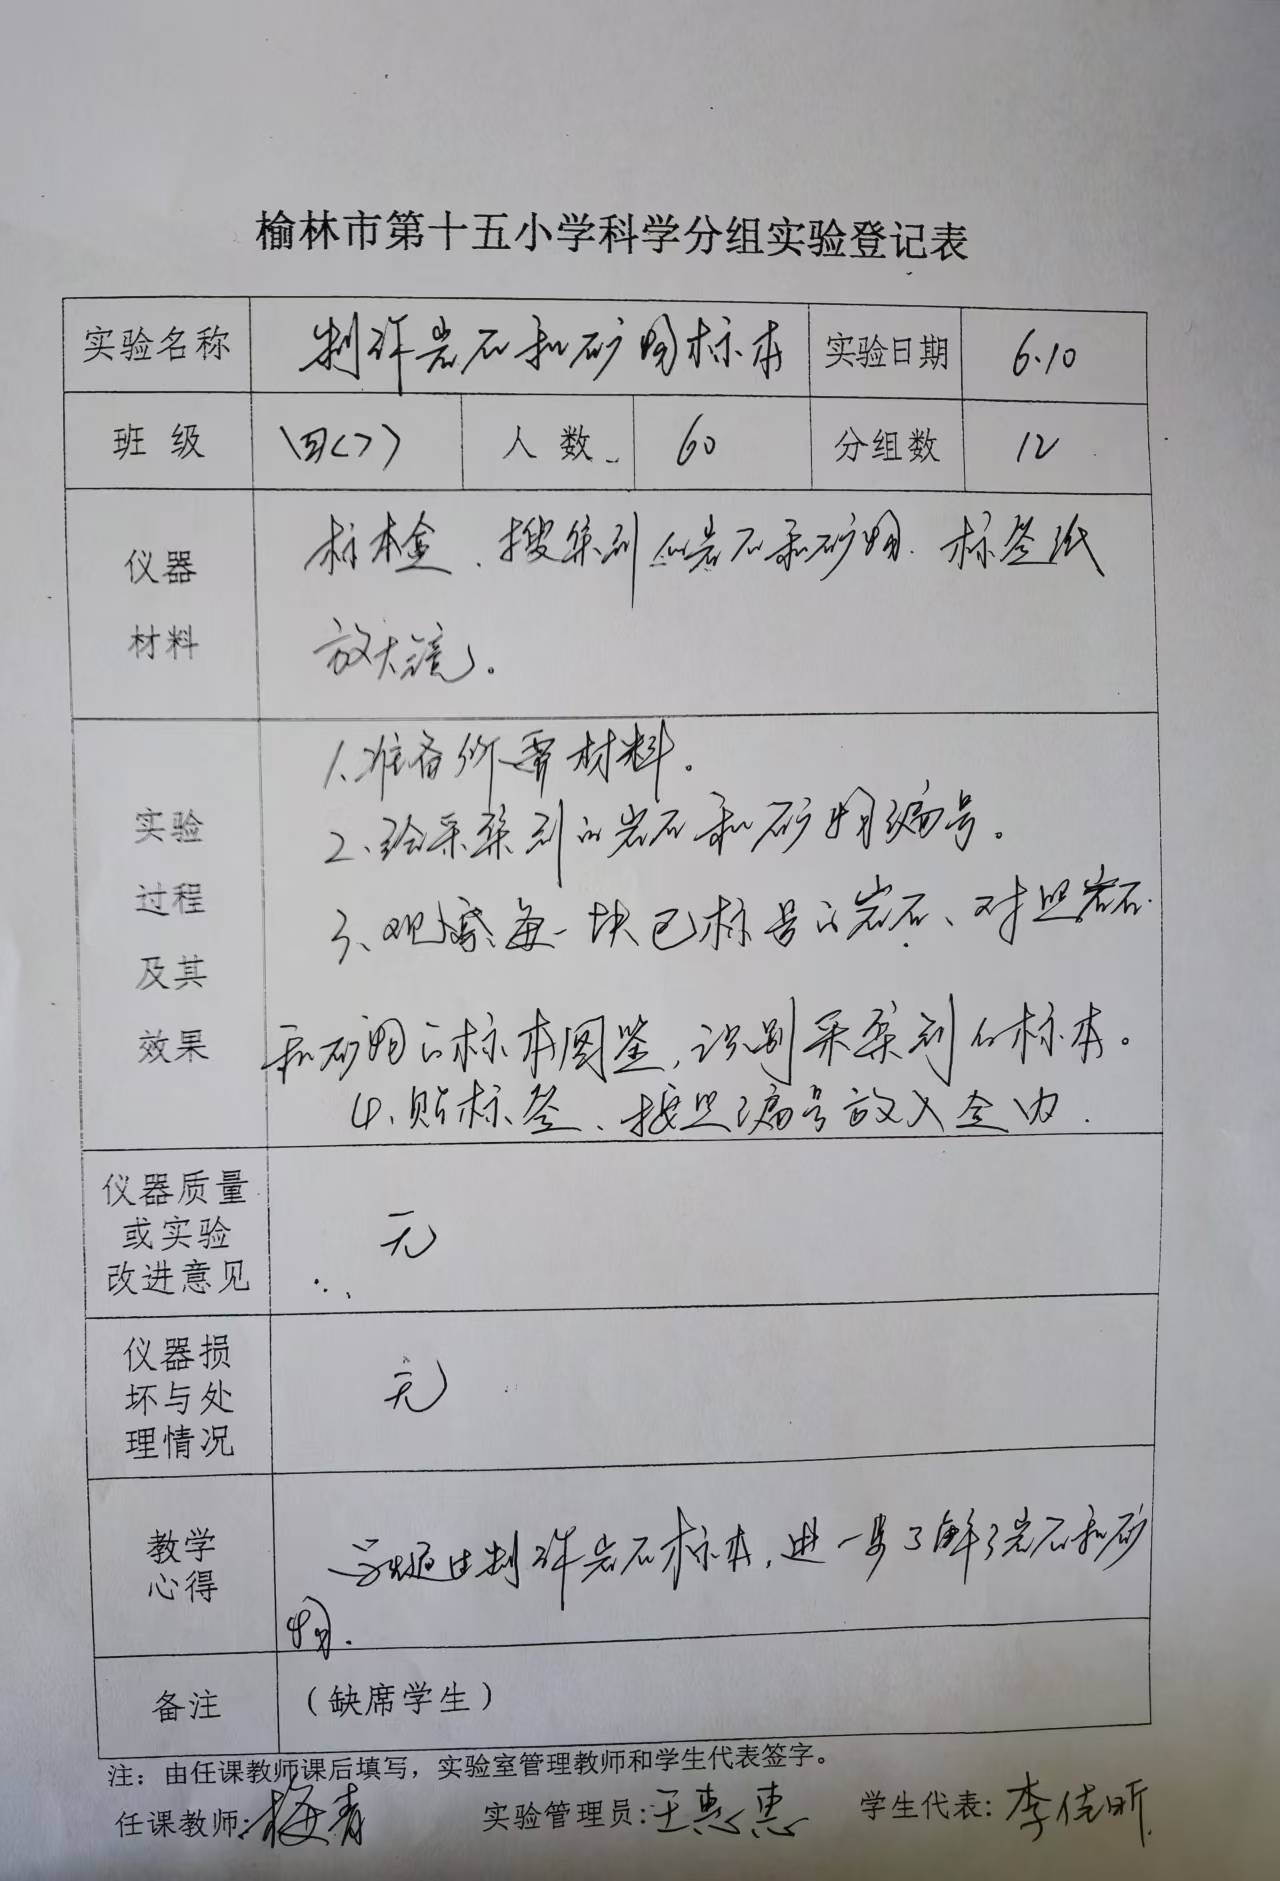 榆林市第十五小学科学分组实验登记表
实验名称 制作岩石和矿物标本 实验日期 6.10
班级 四(7) 人数 60 分组数 12
仪器
材料
标本盒、搜集到的岩石和矿物、标签纸
放大镜。
实验
过程
及其
效果
1、准备所需材料。
2、给采集到的岩石和矿物编号。
3、观察每一块已标号的岩石、对照岩石
和矿物的标本图鉴,识别采集到的标本。
4、贴标签、按照编号放入盒内.
仪器质量
或实验
改进意见
无
仪器损
坏与处
理情况
无
教学
心得
学生通过制作岩石标本,进一步了解了岩石和矿
物.
备注 (缺席学生)
注:由任课教师课后填写,实验室管理教师和学生代表签字。
任课教师:梅青 实验管理员:王惠惠 学生代表:李佳昕